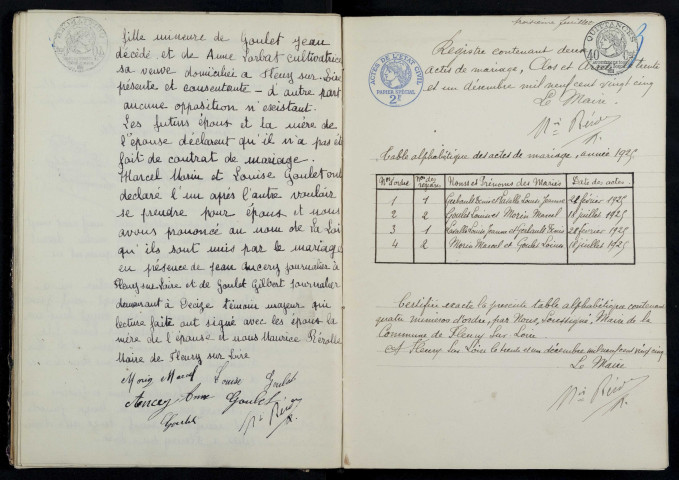 fille mineure de Goulet Jean
décédé et de Anne Larbat cultivatrice
sa veuve domiciliée à Fleury-sur-Loire
présente et consentente – d'autre part
aucune opposition n'existant.
Les futurs époux et la mère de
l'épouse déclarent qu'il n'a pas été
fait de contrat de mariage.
Marcel Morin et Louise Goulet ont
déclaré l'un après l'autre vouloir
se prendre pour époux et nous
avons prononcé au nom de la Loi
qu'ils sont unis par le mariage
en présence de Jean Ancery journalier à
Fleury-sur-Loire et de Goulet Gilbert journalier
demeurant à Decize témoins majeurs qui
lecture faite ont signé avec les époux la
mère de l'épouse et nous Maurice
Maire de Fleury sur Loire
Morin Marcel Louise Goulet
Ancery Anne Goulet
Goulet
feuillet
3
QUITTANCES
40
ACTES DE L'ETAT CIVIL
PAPIER SPÉCIAL
2F
Registre contenant deux
actes de mariage, Clos et trente
et un décembre mil neuf cent vingt cinq
Le Maire
Table alphabétique des actes de mariage, année 1925
Nos d'ordre Nos du registre Noms et Prénoms des Mariés Dates des actes
1 1 Gerbault Denis et Louise Jeanne 28 février 1925
2 2 Goulet Louise et Morin Marcel 18 juillet 1925
3 1 Louise Jeanne et Gerbault Denis 28 février 1925
4 2 Morin Marcel et Goulet Louise 18 juillet 1925
Certifiée exacte la présente table alphabétique contenant
quatre numéros d'ordre, par Nous, Soussigné, Maire de la
Commune de Fleury Sur Loire
A Fleury Sur Loire le trente et un décembre mil neuf cent vingt cinq
Le Maire